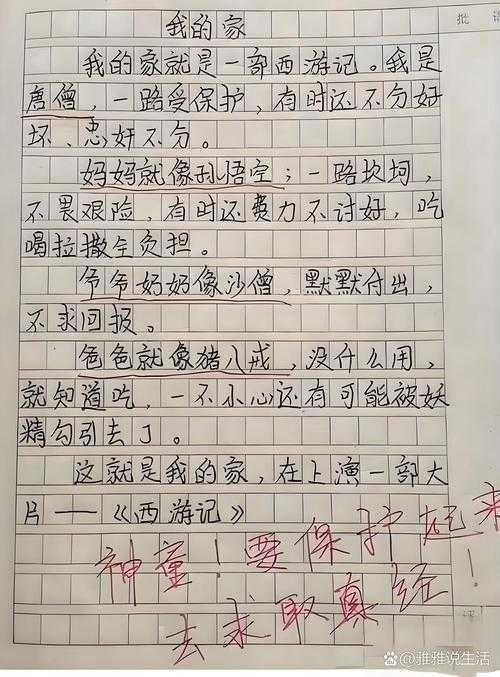 我的家
批语
我的家就是一部西游记。我是
唐僧，一路受保护，有时还不分好
坏、忠奸不分。
妈妈就像孙悟空；一路坎坷，
不畏艰险，有时还费力不讨好，吃
喝拉撒全负担。
爷爷奶奶像沙僧，默默付出，
不求回报。
爸爸就像猪八戒，没什么用，
就知道吃，一不小心还有可能被妖
精勾引去了。
这就是我的家，在上演一部大
片——《西游记》
神童！要保护起来！
去求取真经
@雅雅说生活